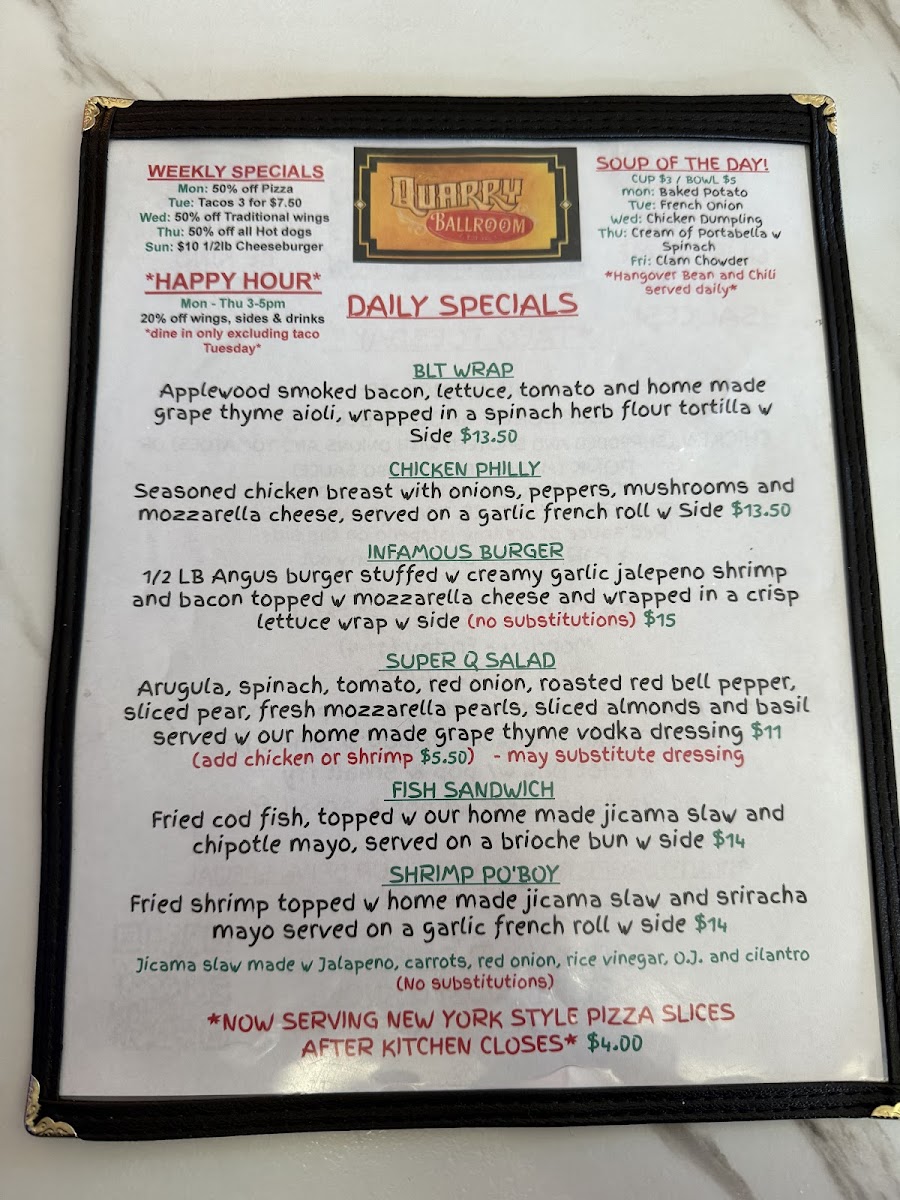 WEEKLY SPECIALS
Mon: 50% off Pizza
Tue: Tacos 3 for $7.50
Wed: 50% off Traditional wings
Thu: 50% off all Hot dogs
Sun: $10 1/2lb Cheeseburger
*HAPPY HOUR*
Mon - Thu 3-5pm
20% off wings, sides & drinks
*dine in only excluding taco
Tuesday*
QUARRY
BALLROOM
SOUP OF THE DAY!
CUP $3 / BOWL $5
mon: Baked Potato
Tue: French Onion
Wed: Chicken Dumpling
Thu: Cream of Portabella w
Spinach
Fri: Clam Chowder
*Hangover Bean and Chili
served daily*
DAILY SPECIALS
BLT WRAP
Applewood smoked bacon, lettuce, tomato and home made
grape thyme aioli, wrapped in a spinach herb flour tortilla w
Side $13.50
CHICKEN PHILLY
Seasoned chicken breast with onions, peppers, mushrooms and
mozzarella cheese, served on a garlic french roll w Side $13.50
INFAMOUS BURGER
1/2 LB Angus burger stuffed w creamy garlic jalepeno shrimp
and bacon topped w mozzarella cheese and wrapped in a crisp
lettuce wrap w side (no substitutions) $15
SUPER Q SALAD
Arugula, spinach, tomato, red onion, roasted red bell pepper,
sliced pear, fresh mozzarella pearls, sliced almonds and basil
served w our home made grape thyme vodka dressing $11
(add chicken or shrimp $5.50) - may substitute dressing
FISH SANDWICH
Fried cod fish, topped w our home made jicama slaw and
chipotle mayo, served on a brioche bun w side $14
SHRIMP PO'BOY
Fried shrimp topped w home made jicama slaw and sriracha
mayo served on a garlic french roll w side $14
Jicama slaw made w Jalapeno, carrots, red onion, rice vinegar, O.J. and cilantro
(No substitutions)
*NOW SERVING NEW YORK STYLE PIZZA SLICES
AFTER KITCHEN CLOSES* $4.00